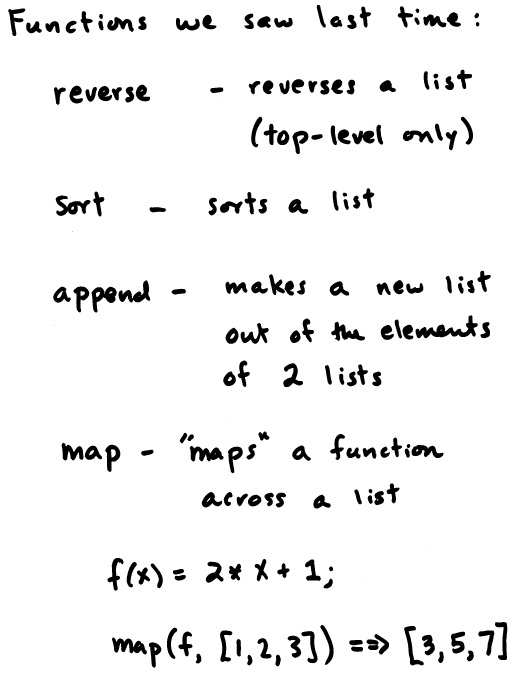 Functions we saw last time:
reverse - reverses a list
(top-level only)
sort - sorts a list
append - makes a new list
out of the elements
of 2 lists
map - "maps" a function
across a list
f(x) = 2* x + 1;
map(f, [1,2,3]) ==> [3,5,7]